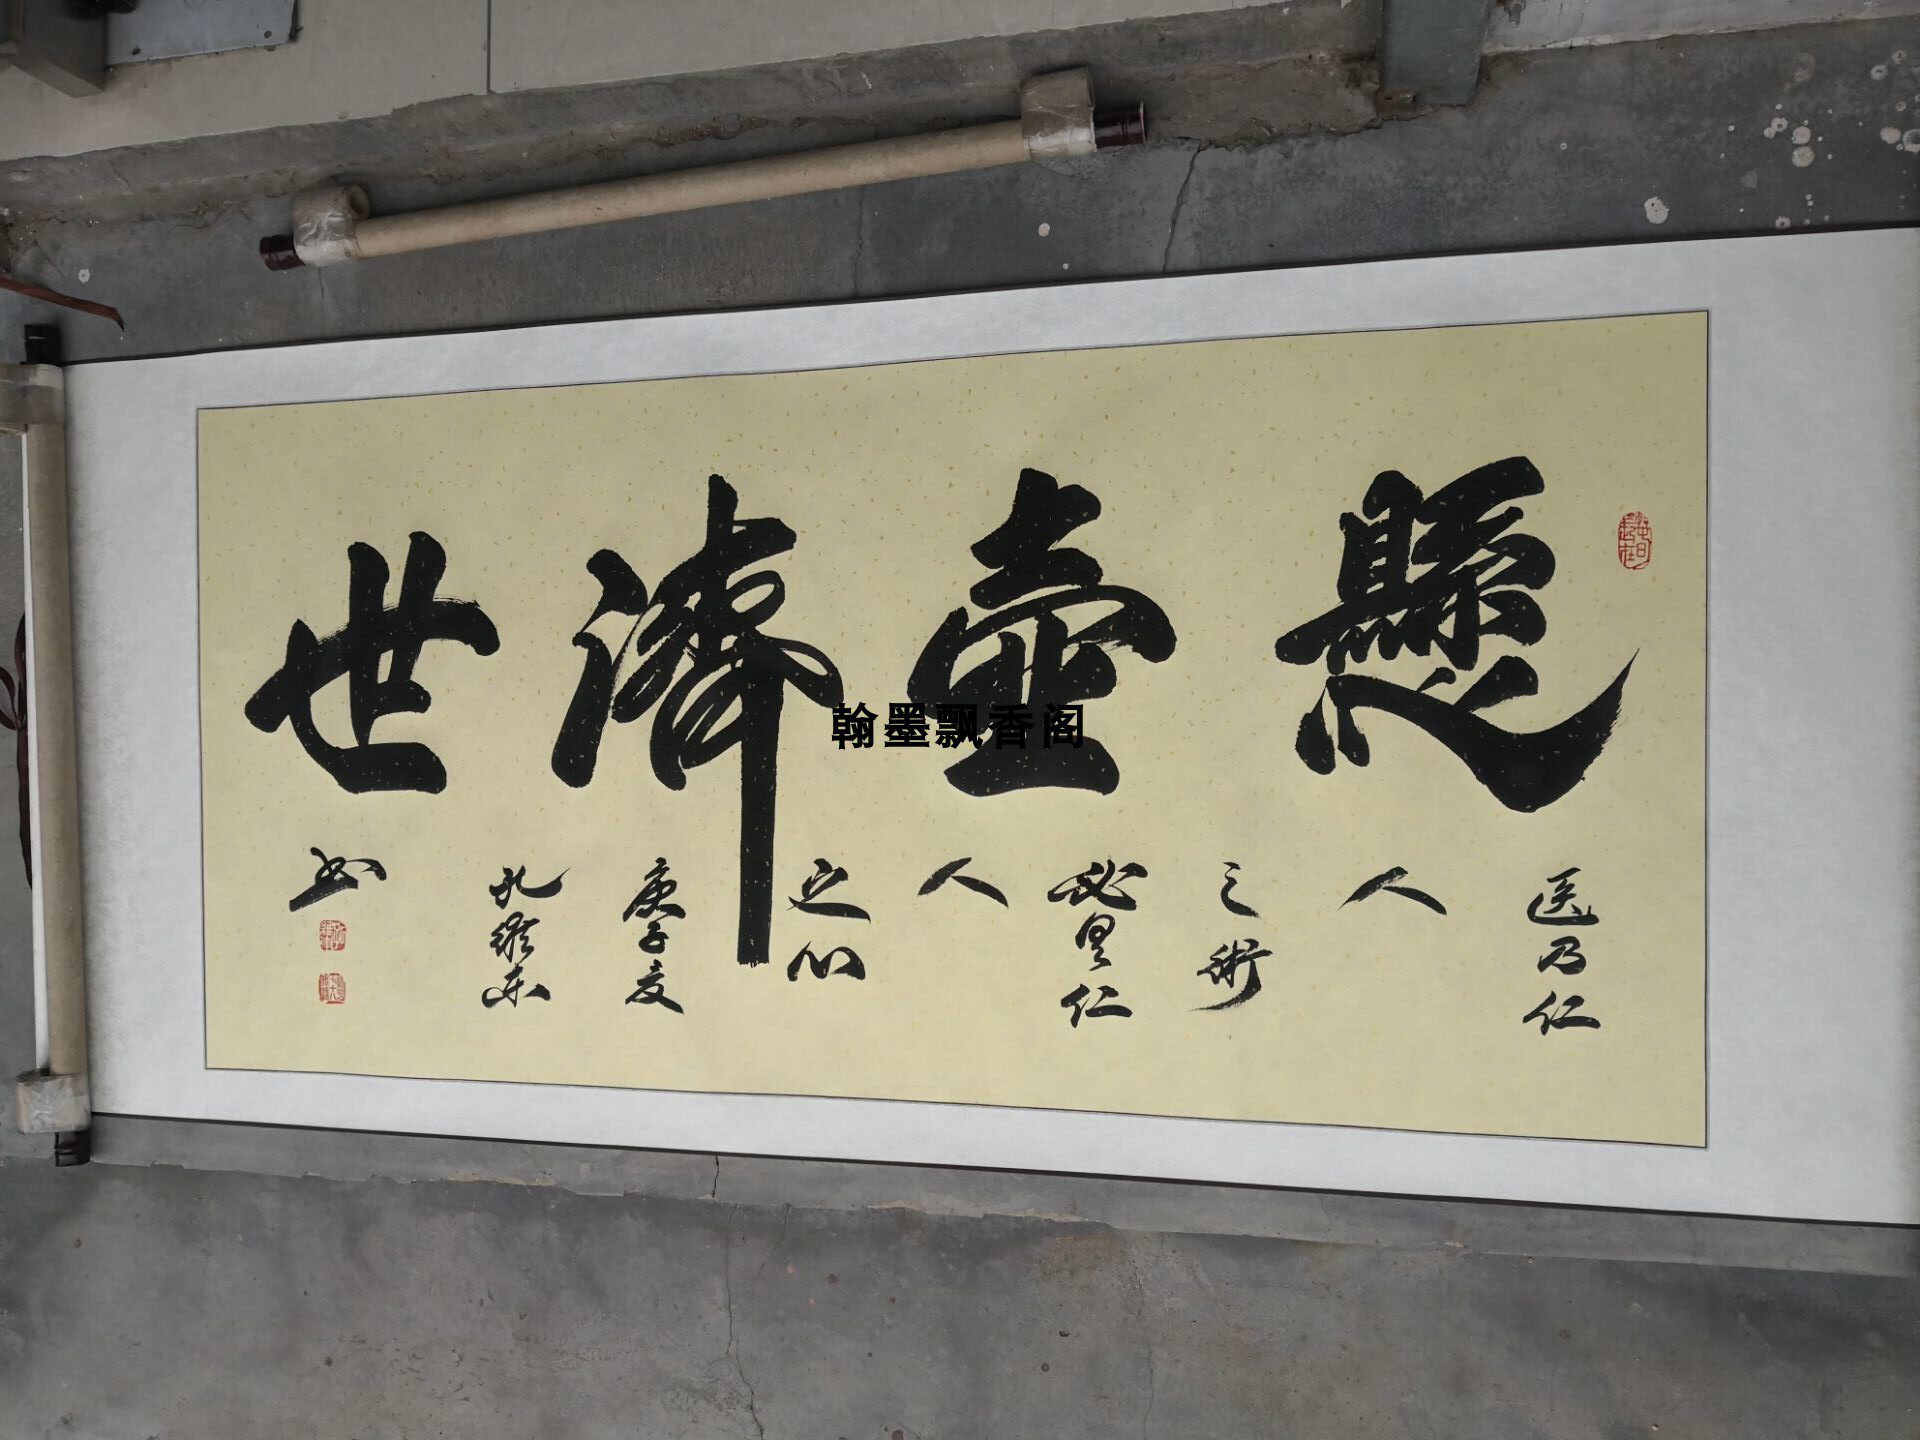 懸壺濟世
医乃仁
人
之術
必具仁
人
之心
庚子夏
孔維东
书
翰墨飘香阁